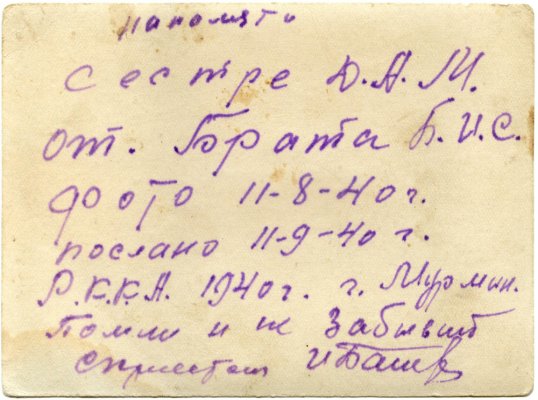 напомять
сестре Д.А.М.
от. Брата Б.И.С.
фото 11-8-40 г.
послано 11-9-40 г.
Р.К.К.А. 1940 г. г. Мурман.
Помни и не Забывай
с приветом И Башев